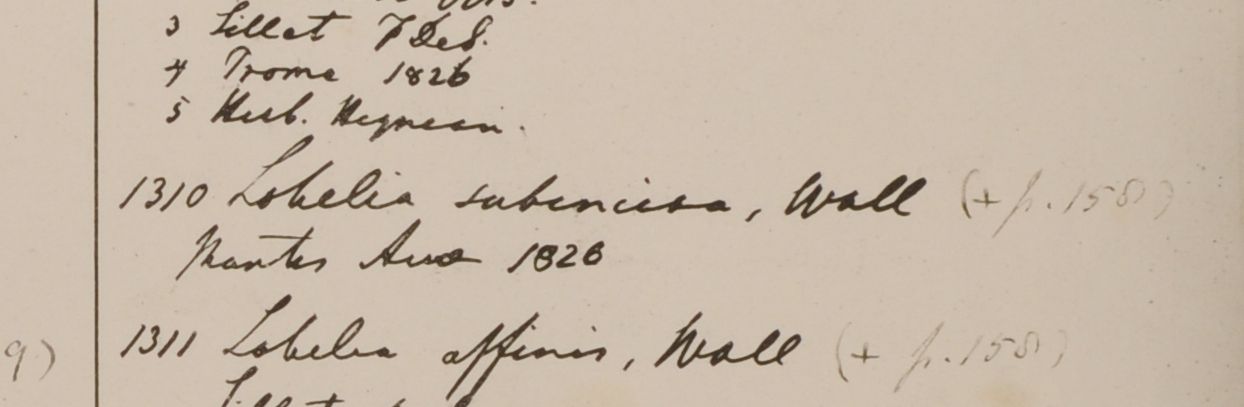 3 Sillet F De S.
4 Prome 1826
5 Herb. Heynean.
1310 Lobelia subincisa, Wall (+ p. 158)
Montes Ava 1826
9)
1311 Lobelia affinis, Wall (+ p. 158)